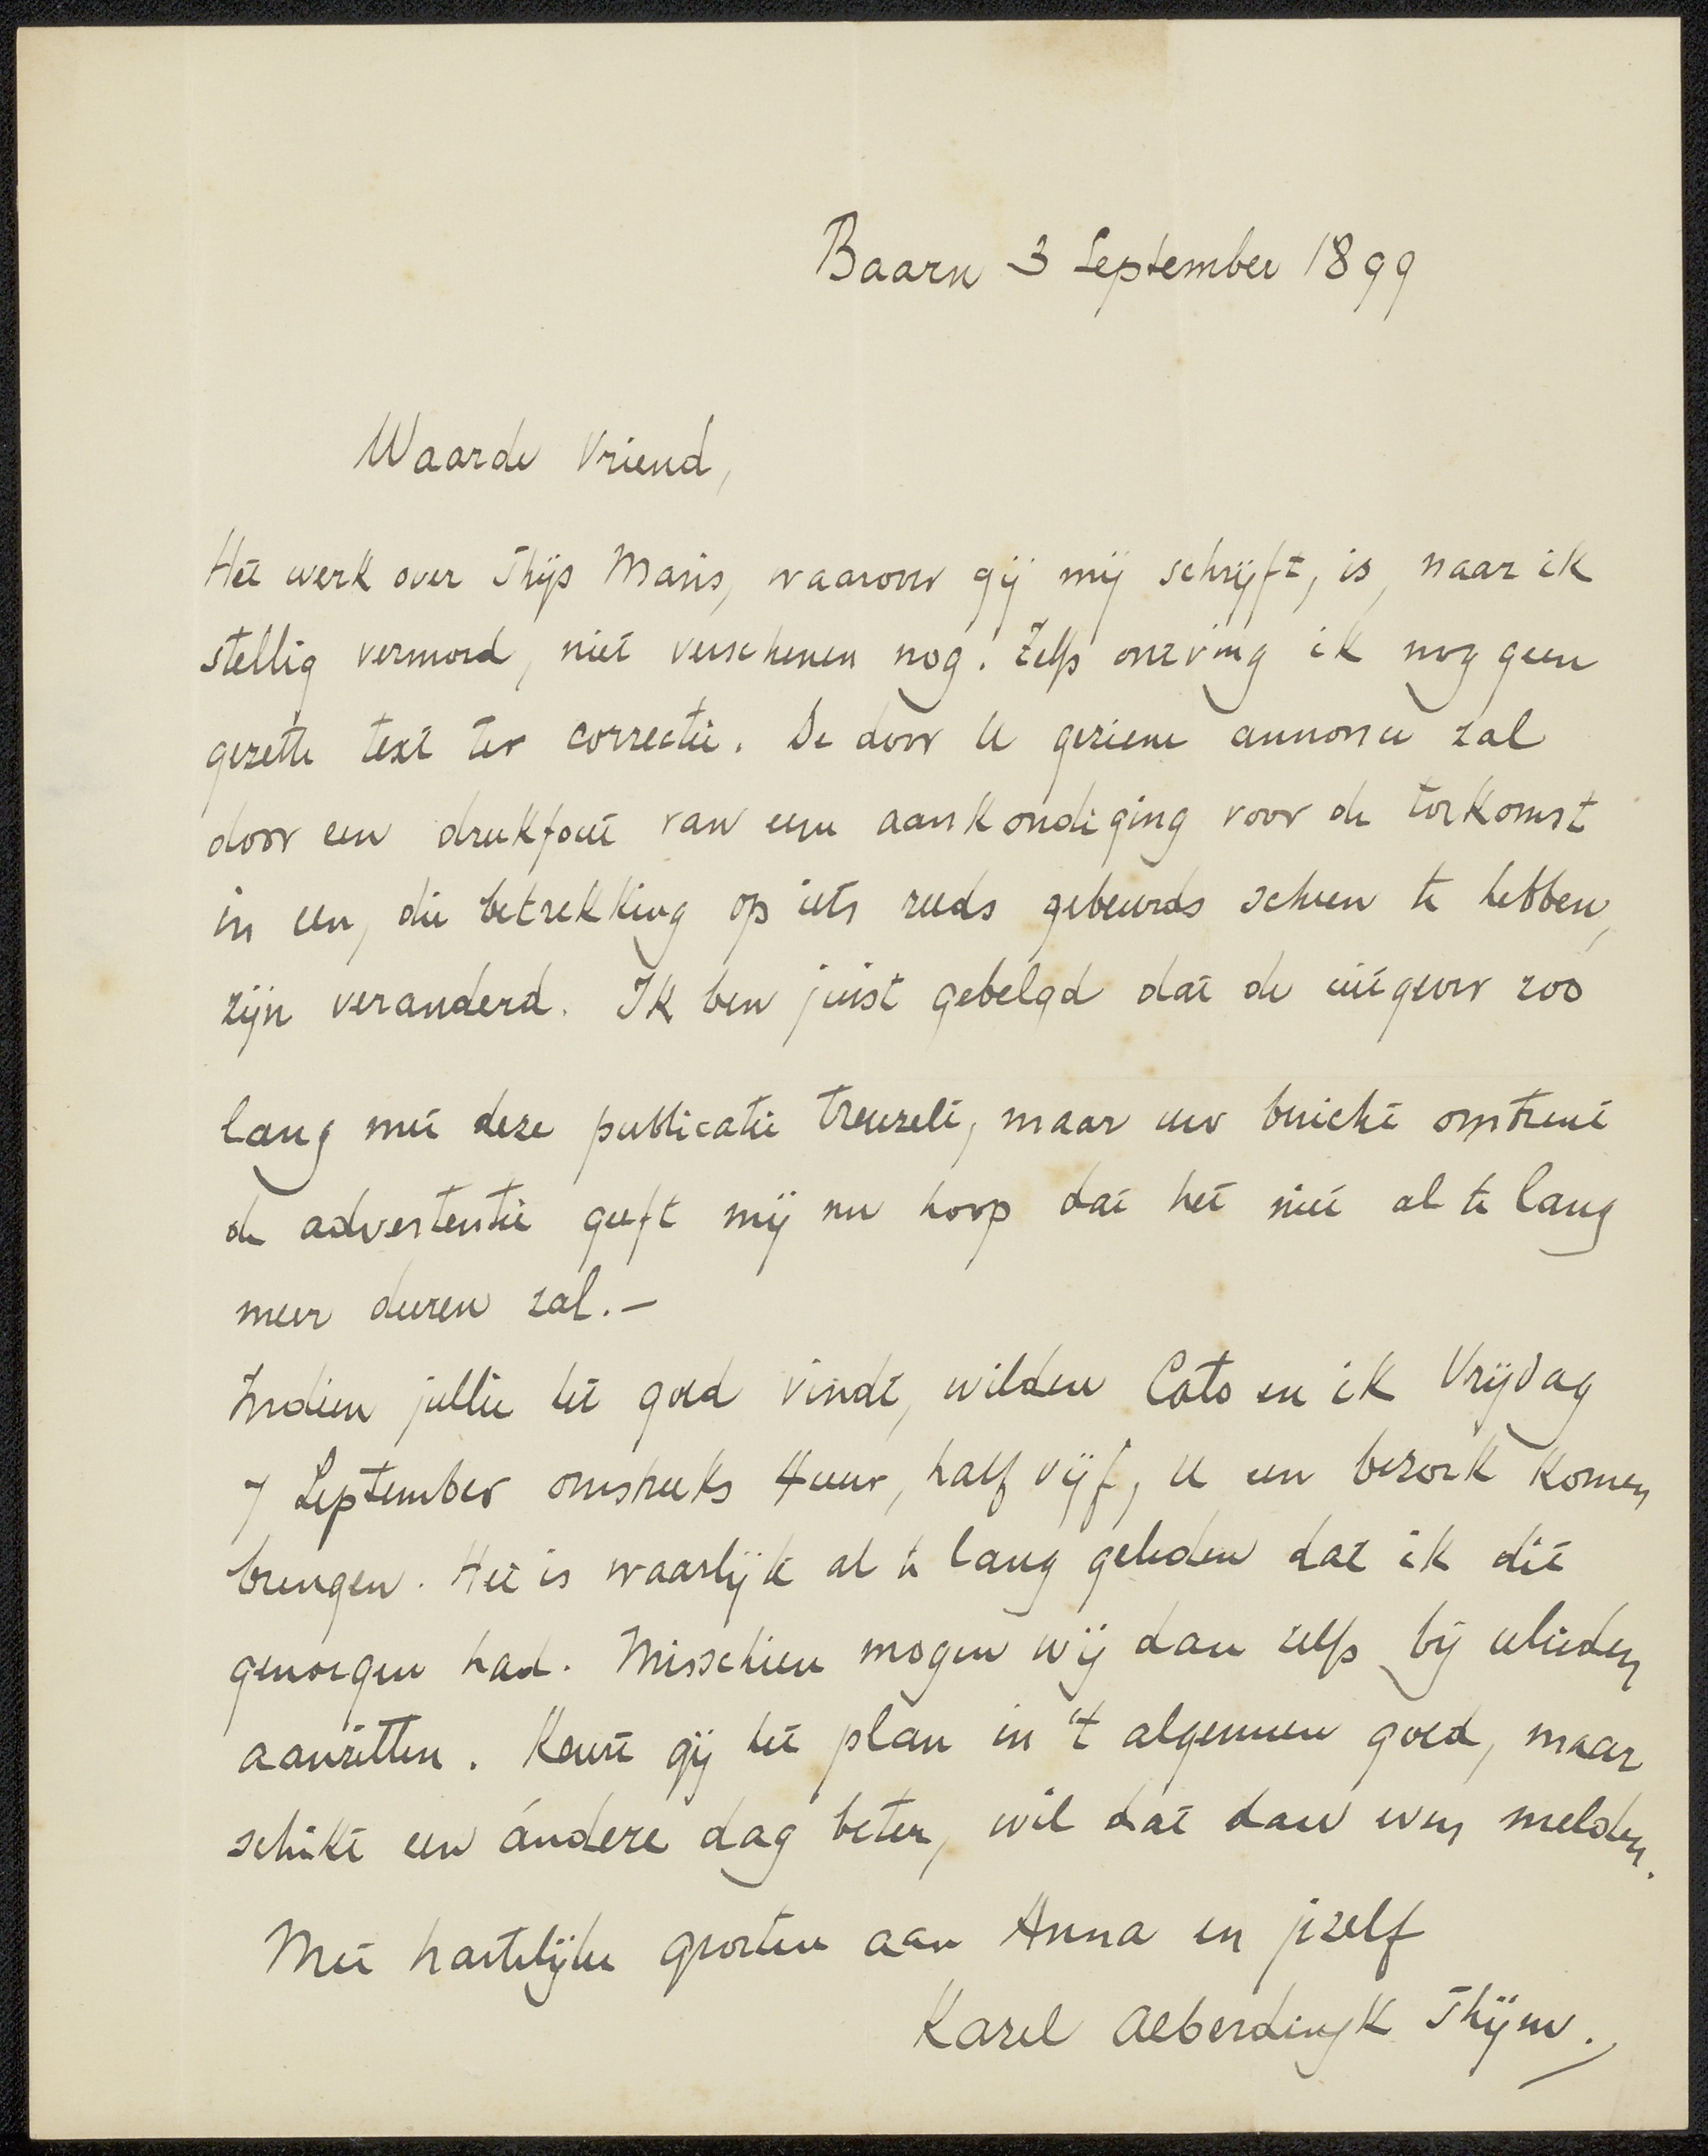 Baarn 3 September 1899
Waarde Vriend,
Het werk over Thijs Maris, waarover gij mij schrijft, is, naar ik
stellig vermoed, niet verschenen nog. Zelfs ontving ik nog geen
gezette text ter correctie. De door U geziene annonce zal
door een drukfout van eene aankondiging voor de toekomst
in een, die betrekking op iets reeds gebeurds scheen te hebben,
zijn veranderd. Ik ben juist gebelgd dat de uitgever zoo
lang met deze publicatie treuzelt, maar uw bericht omtrent
de advertentie geeft mij nu hoop dat het niet al te lang
meer duren zal.—
Indien jullie het goed vindt, wilden Cato en ik Vrijdag
7 September omstreeks 4 uur, half vijf, U een bezoek komen
brengen. Het is waarlijk al te lang geleden dat ik dit
genoegen had. Misschien mogen wij dan zelfs bij ulieden
aanzitten. Keurt gij het plan in 't algemeen goed, maar
schikt een ándere dag beter, wil dat dan even melden.
Met hartelijke groeten aan Anna en jezelf
Karel Alberdingk Thijm.